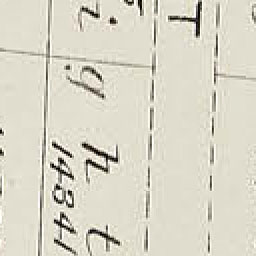 T
ight
14841